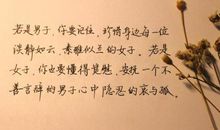 若是男子，你要记住，珍惜身边每一位
淡静如云，素雅似兰的女子。若是
女子，你也要懂得宽慰，安抚一个不
善言辞的男子心中隐忍的哀与孤。